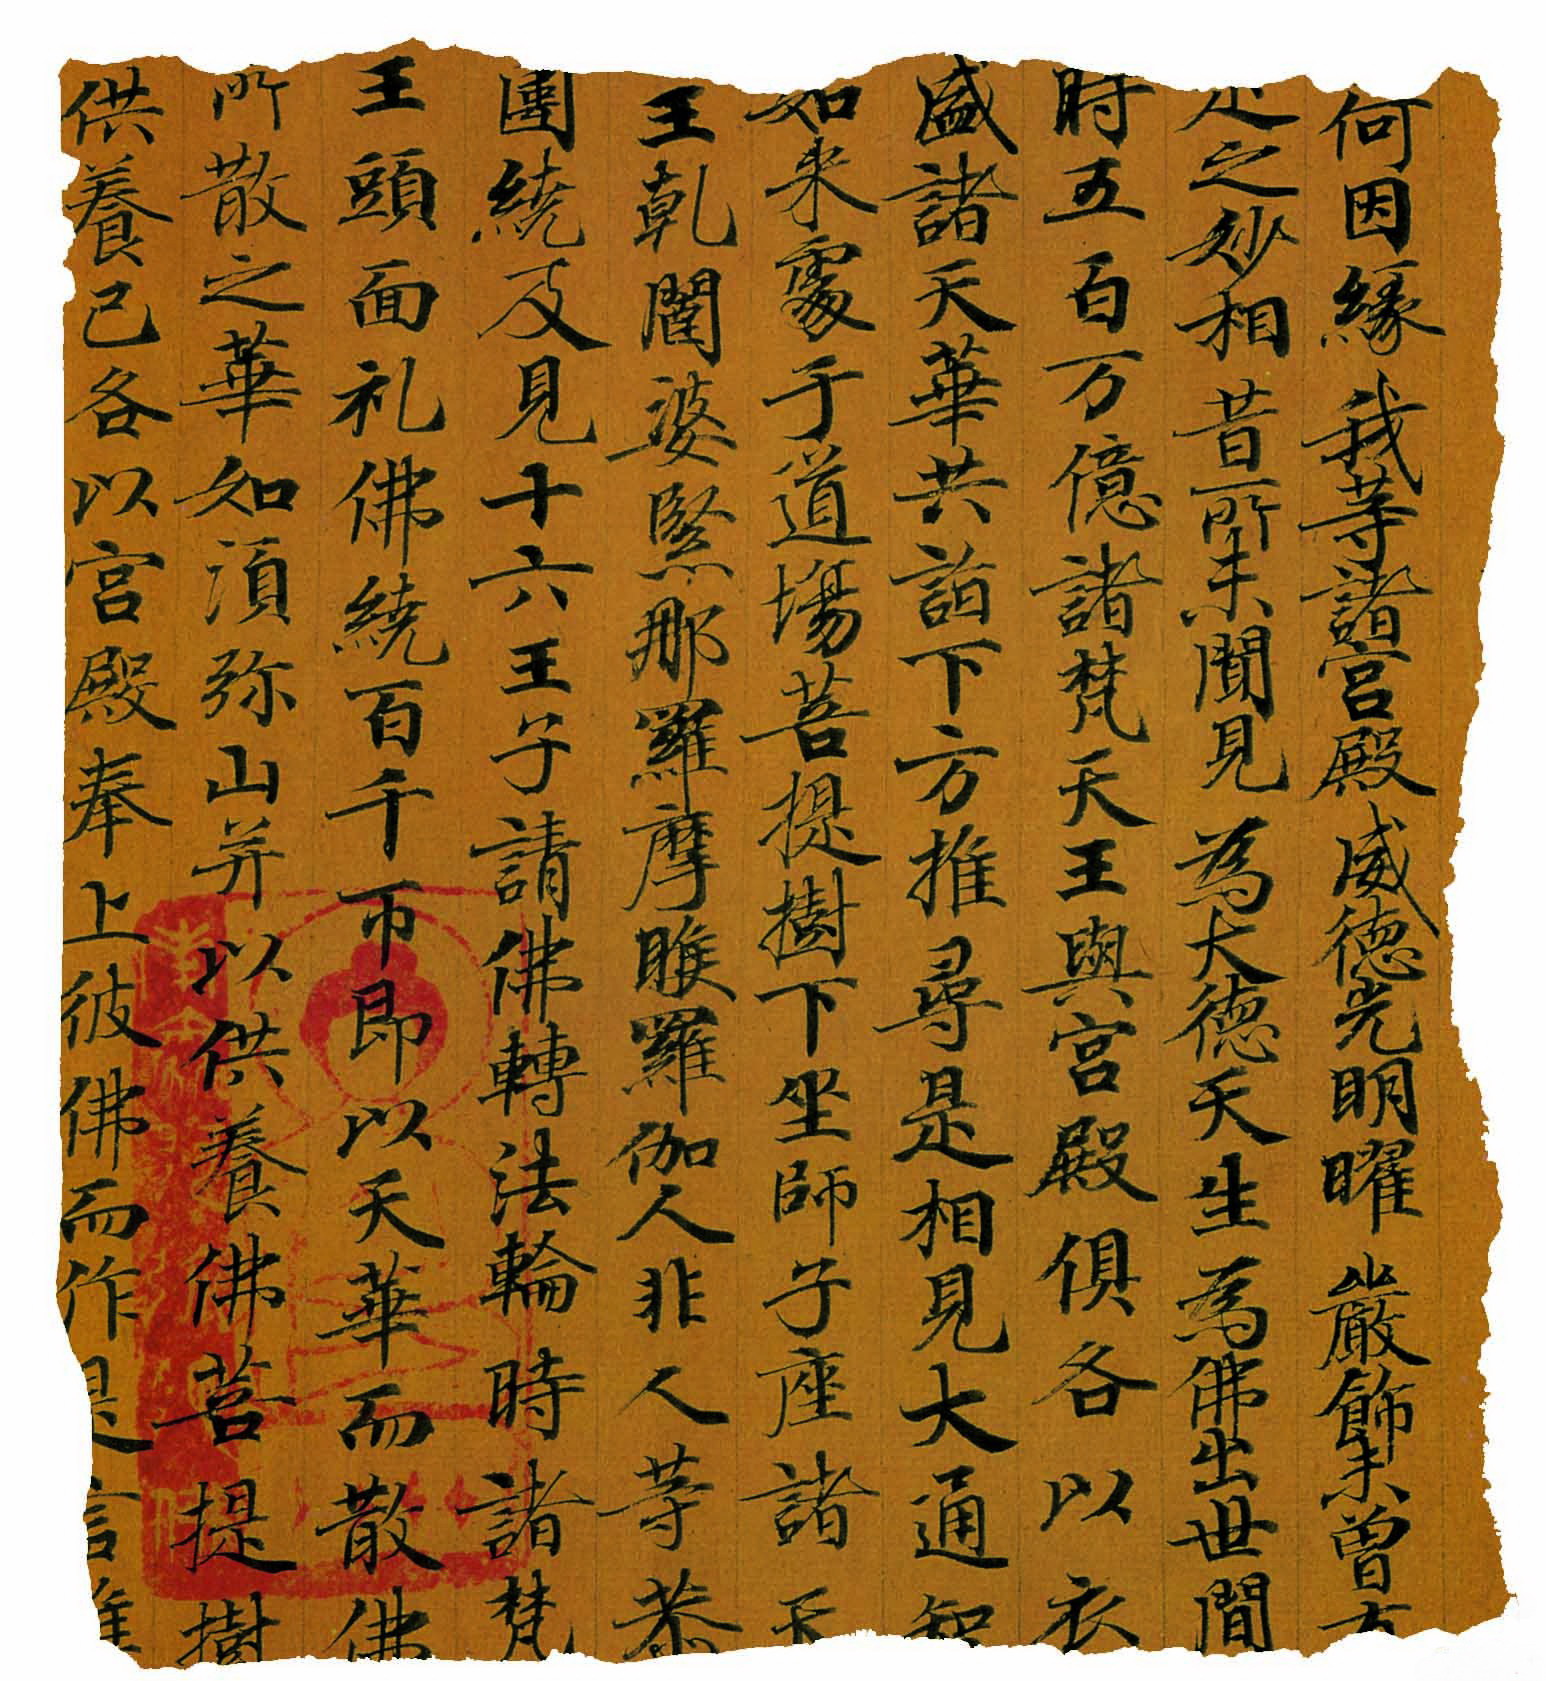 何因緣我等諸宮殿威德光明曜嚴飾未曾有
之妙相昔所未聞見為大德天生為佛出世間
時五百万億諸梵天王與宮殿俱各以衣
盛諸天華共詣下方推尋是相見大通智
如来處于道場菩提樹下坐師子座諸天
王乾闥婆緊那羅摩睺羅伽人非人等恭
圍繞及見十六王子請佛轉法輪時諸梵
王頭面礼佛繞百千帀即以天華而散佛
所散之華如須弥山并以供養佛菩提樹
供養已各以宮殿奉上彼佛而作是言